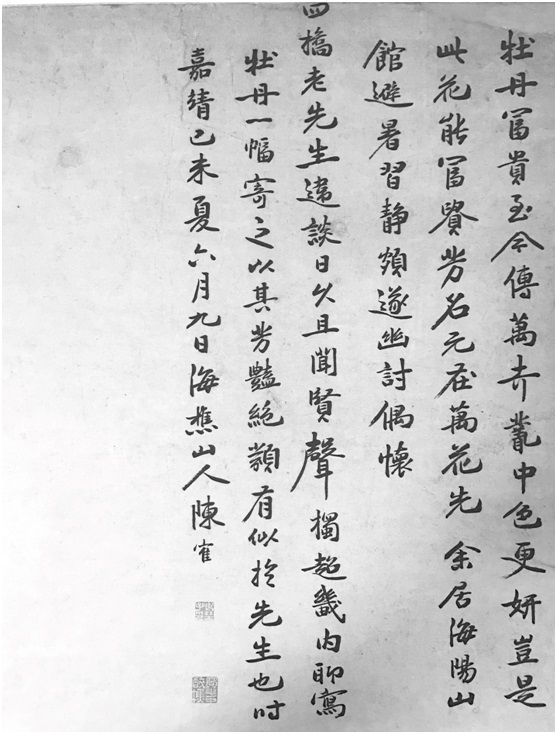 牡丹冨貴至今傳萬卉叢中色更妍豈是
此花能冨貴芳名元在萬花先余居海陽山
館避暑習静頗遂幽討偶懷
四橋老先生違談日久且聞賢聲獨超畿内聊寫
牡丹一幅寄之以其芳豔絶類有似於先生也时
嘉靖己未夏六月九日海樵山人陳隺